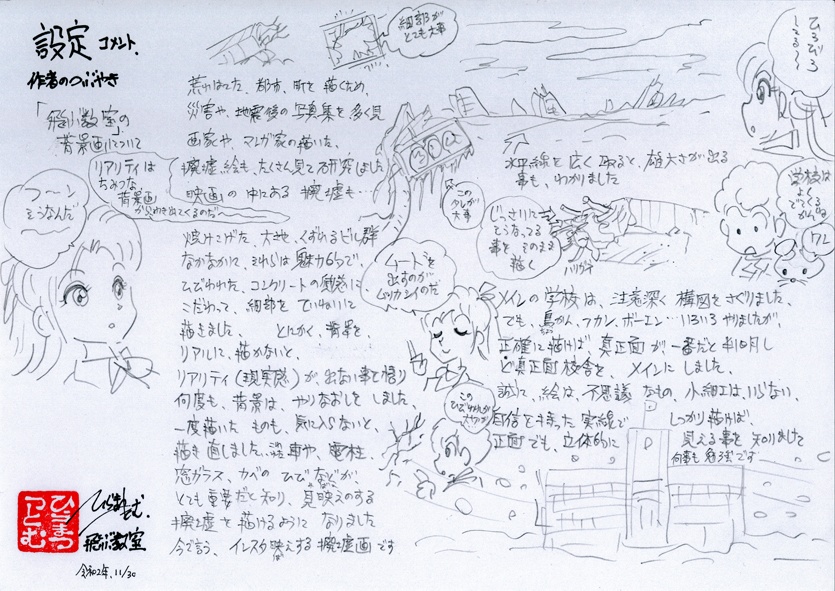 設定 コメント.
作者のつぶやき
「飛ぶ教室の
背景画」について
フーン
そうなんだ
リアリティは
ちみつな、
背景画
から
細部が
とても大事
荒れはてた、都市、町を描くため、
災害や、地震後の写真集を多く見
画家や、マンガ家の描いた、
廃墟絵も、たくさん見て研究しました
映画の中にある廃墟も…
焼けこげた、大地、くずれるビル群
なかなかに、それらは魅力的で、
ひびわれた、コンクリートの質感に、
こだわって、細部をていねいに
描きました、とにかく、背景を
リアルに、描かないと、
リアリティ(現実感)が、出ない事を悟り
何度も、背景は、やりなおしをしました、
一度描いたものも、気に入らないと、
描き直しました、車や、電柱、
窓ガラス、カベのひびなどが、
とても重要だと知り、見映えのする
廃墟を描けるようになりました
今で言う、インスタ映えする廃墟画です
この
タレが
大事
ムードを
出すのが
ムツカシイのだ
この
ひびわれが
水平線を広く取ると、雄大さが出る
事も、わかりました
じっさいに
どうなってる
事を そのまま
描く
ハリガネ
ひろびろ
学校は
よく
でてくる
からね
ワン
メインの学校は、注意深く構図をさぐりました、
でも、鳥かん、フカン、ボーエン…いろいろやりましたが、
正確に描けば、真正面が、一番だと判明し
ど真正面校舎を、メインにしました、
誠に、絵は、不思議なもの、小細工は、いらない、
自信を持った実線で しっかり描けば、
正面でも、立体的に 見える事を知りました
何事も 勉強です
ひらまつ
つとむ
ひらまつつとむ.
飛ぶ教室
令和2年.11/30